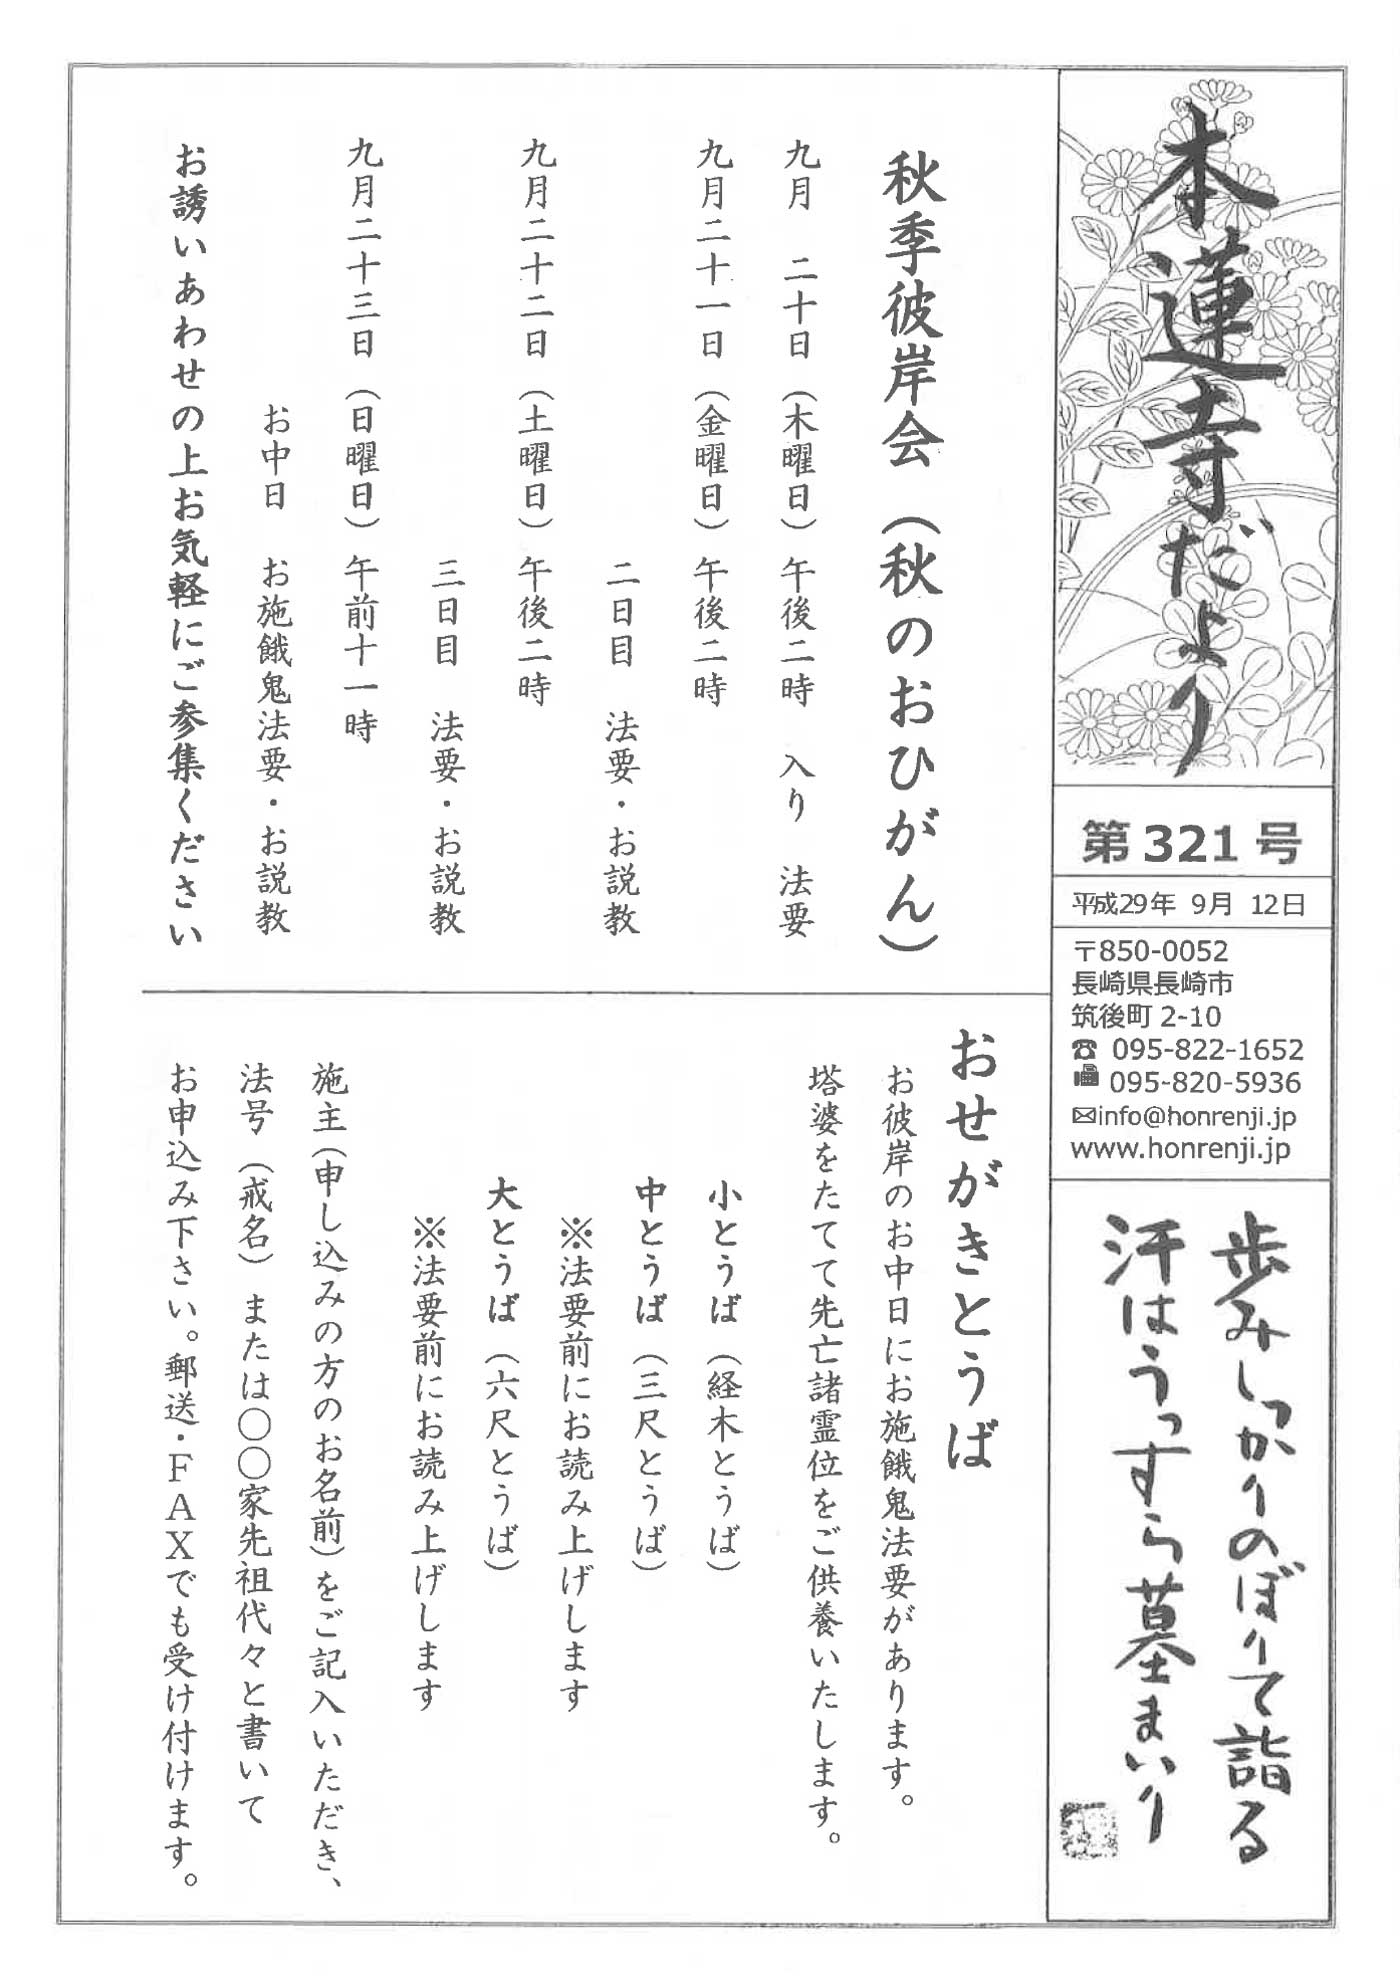 本蓮寺だより
第321号
平成29年 9月 12日
〒850-0052
長崎県長崎市
筑後町 2-10
☎ 095-822-1652
📠 095-820-5936
✉info@honrenji.jp
www.honrenji.jp
歩みしっかりのぼりて詣る
汗はうっすら墓まいり
秋季彼岸会（秋のおひがん）
九月 二十日（木曜日）午後二時 入り 法要
九月二十一日（金曜日）午後二時
二日目 法要・お説教
九月二十二日（土曜日）午後二時
三日目 法要・お説教
九月二十三日（日曜日）午前十一時
お中日 お施餓鬼法要・お説教
お誘いあわせの上お気軽にご参集ください
おせがきとうば
お彼岸のお中日にお施餓鬼法要があります。
塔婆をたてて先亡諸霊位をご供養いたします。
小とうば（経木とうば）
中とうば（三尺とうば）
※法要前にお読み上げします
大とうば（六尺とうば）
※法要前にお読み上げします
施主（申し込みの方のお名前）をご記入いただき、
法号（戒名）または〇〇家先祖代々と書いて
お申込み下さい。郵送・ＦＡＸでも受け付けます。